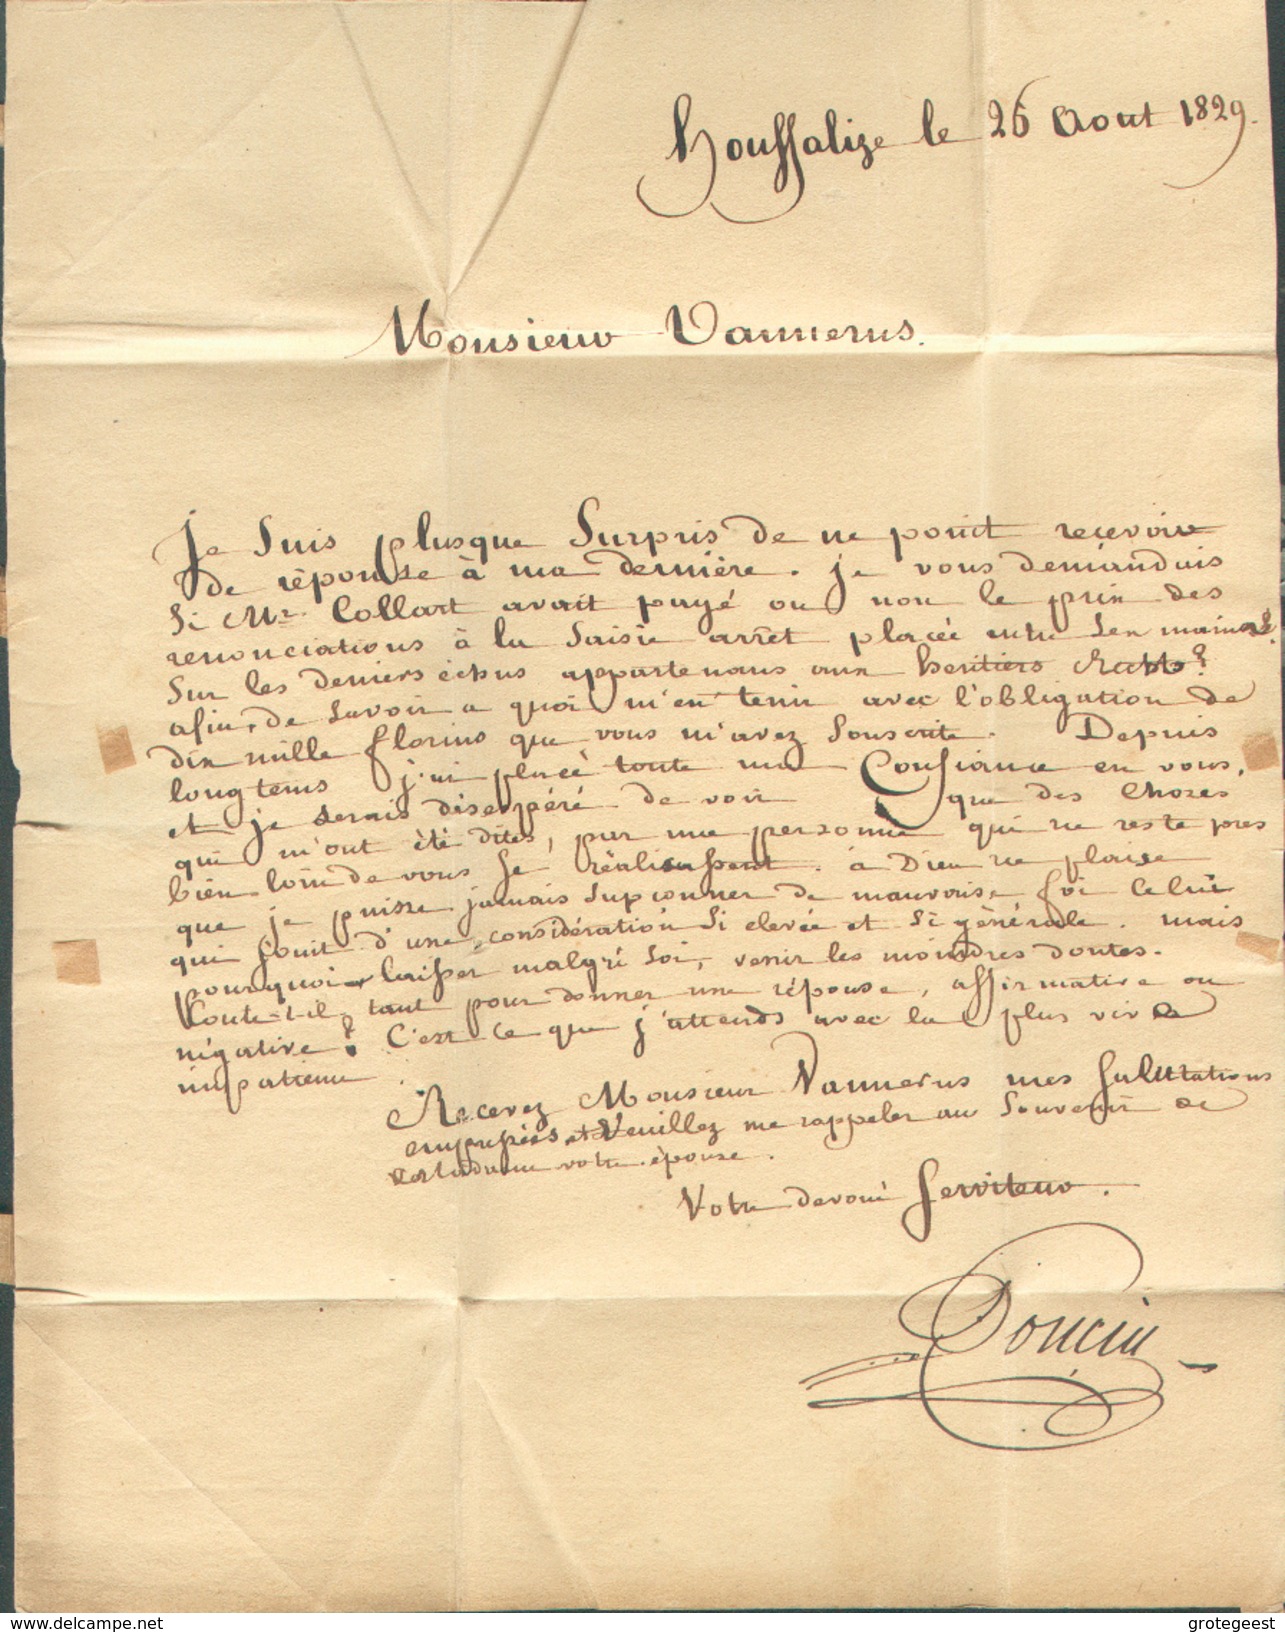 houffalize le 26 Aout 1829.
Monsieur Vannerus.
Je suis plusque surpris de ne point recevoir
de réponse à ma dernière. je vous demandais
si Mr. Collart avait payé ou non le prix des
renonciations à la saisie arrêt placée entre ses mains
sur les deniers échus appartenans aux heritiers ?
afin de savoir a quoi m'en tenir avec l'obligation de
dix mille florins que vous m'avez souscrite. Depuis
longtems j'ai placé toute ma confiance en vous,
et je serais désespéré de voir que des choses
qui m'ont été dites, par une personne qui ne reste pas
bien loin de vous se réalisassent. à Dieu ne plaise
que je puisse jamais supconner de mauvaise foi celui
qui jouit d'une considération si elevée et si générale. mais
pourquoi laisser malgré soi, venir les moindres doutes.
Coute-t-il tant pour donner une réponse, affirmative ou
négative? C'est ce que j'attends avec la plus vive
impatience.
Recevez Monsieur Vannerus mes salutations
empressées et veuillez me rappeler au souvenir de
madame votre épouse.
Votre devoué serviteur.
Doncin
delcampe.net
grotegeest